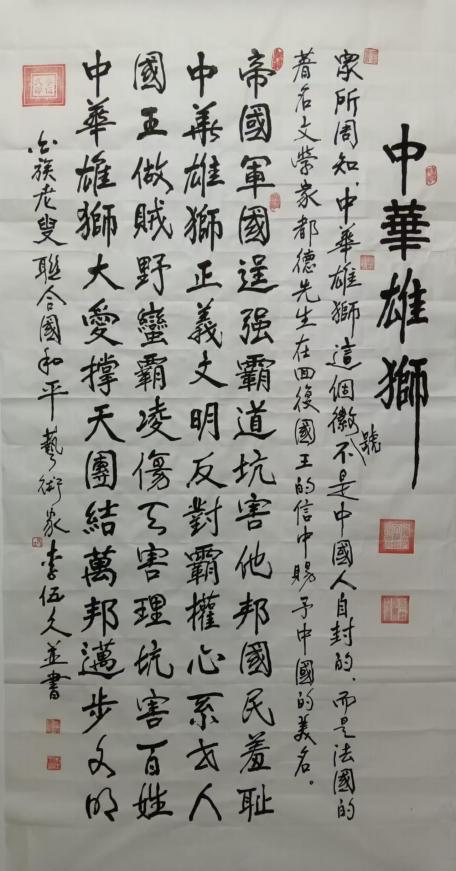 中華雄獅
眾所周知、中華雄獅這個徽號不是中國人自封的、而是法國的
著名文學家都德先生在回復國王的信中賜予中國的美名。
帝國軍國逞强霸道坑害他邦國民羞耻
中華雄獅正義文明反對霸權心系世人
國王做賊野蠻霸凌傷天害理坑害百姓
中華雄獅大愛撑天團結萬邦邁步文明
族老叟聯合國和平藝術家李伍久並書